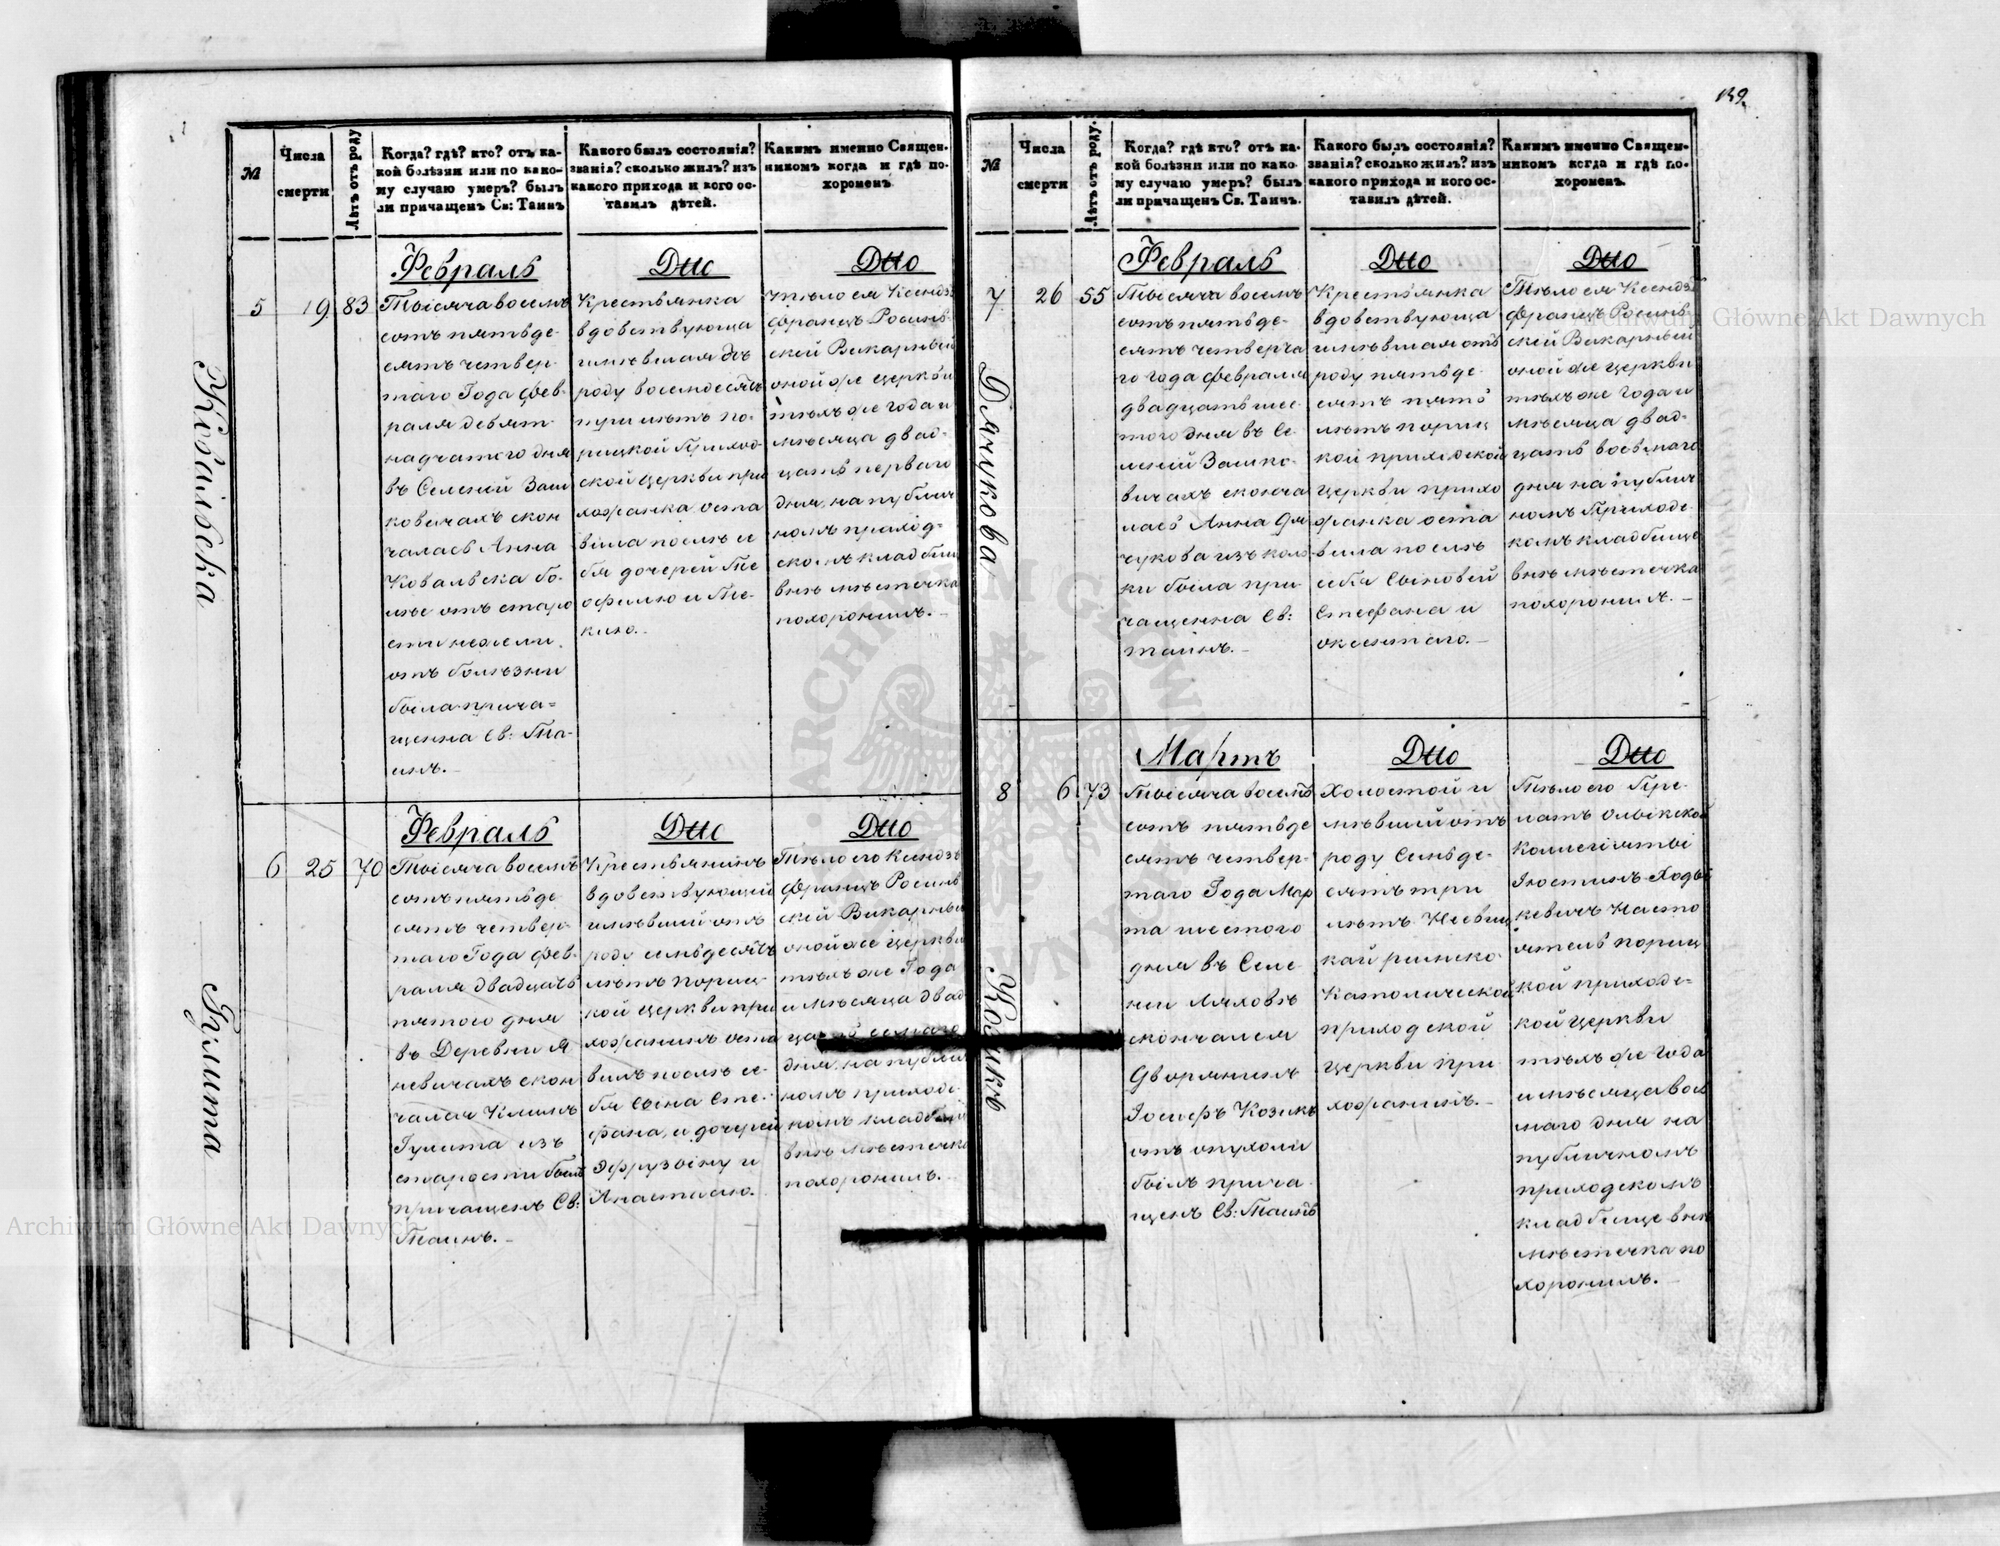 139.
№
Числа
смерти
Лѣтъ отъ роду
Когда? гдѣ? кто? отъ ка-
кой болѣзни или по како-
му случаю умеръ? былъ
ли причащенъ Св: Таинъ
Какого былъ состоянія?
званія? сколько жилъ? изъ
какого прихода и кого ос-
тавилъ дѣтей.
Какимъ именно Священ-
никомъ когда и гдѣ по-
хороненъ
Ковальска
5
19
83
Февраль
Тысяча восемь
сотъ пятьде
сятъ четвер-
таго Года фев-
раля девят-
надцатого дня
въ Селеній Заш
ковичахъ скон
чалась Анна
Ковальска бо-
лѣе отъ старо
сти нежели
отъ болѣзни
была прича=
щенна Св: Та-
инъ.-
Dtto
Крестьянка
вдовствующа
имѣвшая отъ
роду восемдесятъ
три лѣтъ по-
рицкой Приход-
ской Церкви при
хожанка оста
вила послѣ се
бя дочерей Те
офилю и Те-
клю.-
Dtto
Тѣло ея Ксендзъ
Францъ Росинь-
скей Викарный
оной же церкви
тѣхъ же года и
мѣсяца двад-
цать первого
дня, на публич
номъ приход=
скомъ кладбищ
внѣ мѣстечка
похоронилъ.-
Гулита
6
25
70
Февраль
Тысяча восемь
сотъ пятьде
сятъ четвер-
таго Года фев-
раля двадцать
пятого дня
въ Деревни Я
невичахъ скон
чался Климъ
Гулита изъ
старости былъ
причащенъ Св:
Таинъ.-
Dtto
Крестьянинъ
вдовствующій
имѣвшій отъ
роду семьдесятъ
лѣтъ пориц-
кой церкви при
хожанинъ оста
вилъ послѣ се-
бя Сына Сте-
фана, и дочерей
Эфрузину и
Анастасію.
Dtto
Тѣло его Ксендзъ
Францъ Росинь
скей Викарный
оной же Церкви
тѣхъ же Года
и мѣсяца двад
цать седмаго
дня, на публич
номъ приходс-
комъ кладбищѣ
внѣ мѣстечка
похоронилъ.-
№
Числа
смерти
Лѣтъ отъ роду.
Когда? гдѣ? кто? отъ ка-
кой болѣзни или по како-
му случаю умеръ? былъ
ли причащенъ Св. Таинъ.
Какого былъ состоянія?
званія? сколько жилъ? изъ
какого прихода и кого ос-
тавилъ дѣтей.
Какимъ именно Священ-
никомъ когда и гдѣ по-
хороненъ.
Дячукова
7
26
55
Февраль
Тысяча восемь
сотъ пятьде-
сятъ четверта
го года февраля
двадцать шес-
того дня въ Се-
леній Зашко-
вичахъ сконча
лась Анна Дя
чукова изъ кол
ки была при-
чащенна Св:
таинъ.-
Dtto
Крестьянка
вдовствующа
имѣвшая отъ
роду пятьде-
сятъ пять
лѣтъ пориц
кой приходской
церкви прихо
жанка оста
вила послѣ
себя Сыновей
Стефана и
Dtto
Тѣло ея Ксендзъ
Францъ Росинь-
скей Викарный
оной же церкви
тѣхъ же года и
мѣсяца двад-
цать восьмаго
дня на публич
номъ Приходс-
комъ кладбище
внѣ мѣстечка
похоронилъ.-
Козикъ
8
6
73
Мартъ
Тысяча восемь
сотъ пятьде
сятъ четвер-
таго Года Мар
та шестого
дня въ Селе
ніи Ляховѣ
скончался
Дворянинъ
Іосифъ Козикъ
отъ опухоли
былъ прича
щенъ Св: Таинъ
Dtto
Холостой и
мѣвшій отъ
роду Семьде-
сятъ три
лѣтъ
кай римско
Католической
приходской
церкви при
хожанинъ.-
Dtto
Тѣло его Пре-
латъ Олыкской
коллегіяты
Іюстинъ Ходы
кевичъ Насто
ятель пориц
кой приходс-
кой церкви
тѣхъ же года
и мѣсяца вось
маго дня на
публичномъ
приходскомъ
кладбище внѣ
мѣстечка по
хоронилъ.-
Archiwum Główne Akt Dawnych
Archiwum Główne Akt Dawnych